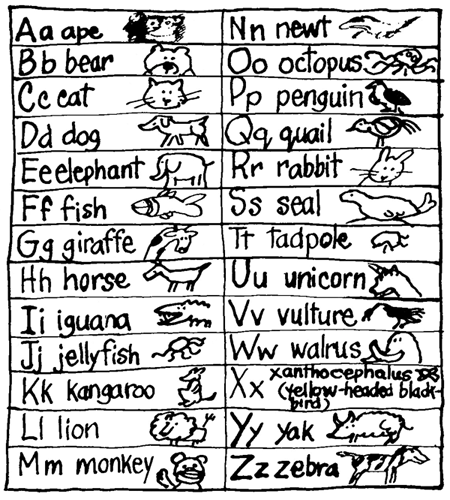 Aa ape
Bb bear
Cc cat
Dd dog
Ee elephant
Ff fish
Gg giraffe
Hh horse
Ii iguana
Jj jellyfish
Kk kangaroo
Ll lion
Mm monkey
Nn newt
Oo octopus
Pp penguin
Qq quail
Rr rabbit
Ss seal
Tt tadpole
Uu unicorn
Vv vulture
Ww walrus
Xx xanthocephalus
(yellow-headed black-
bird)
Yy yak
Zz zebra